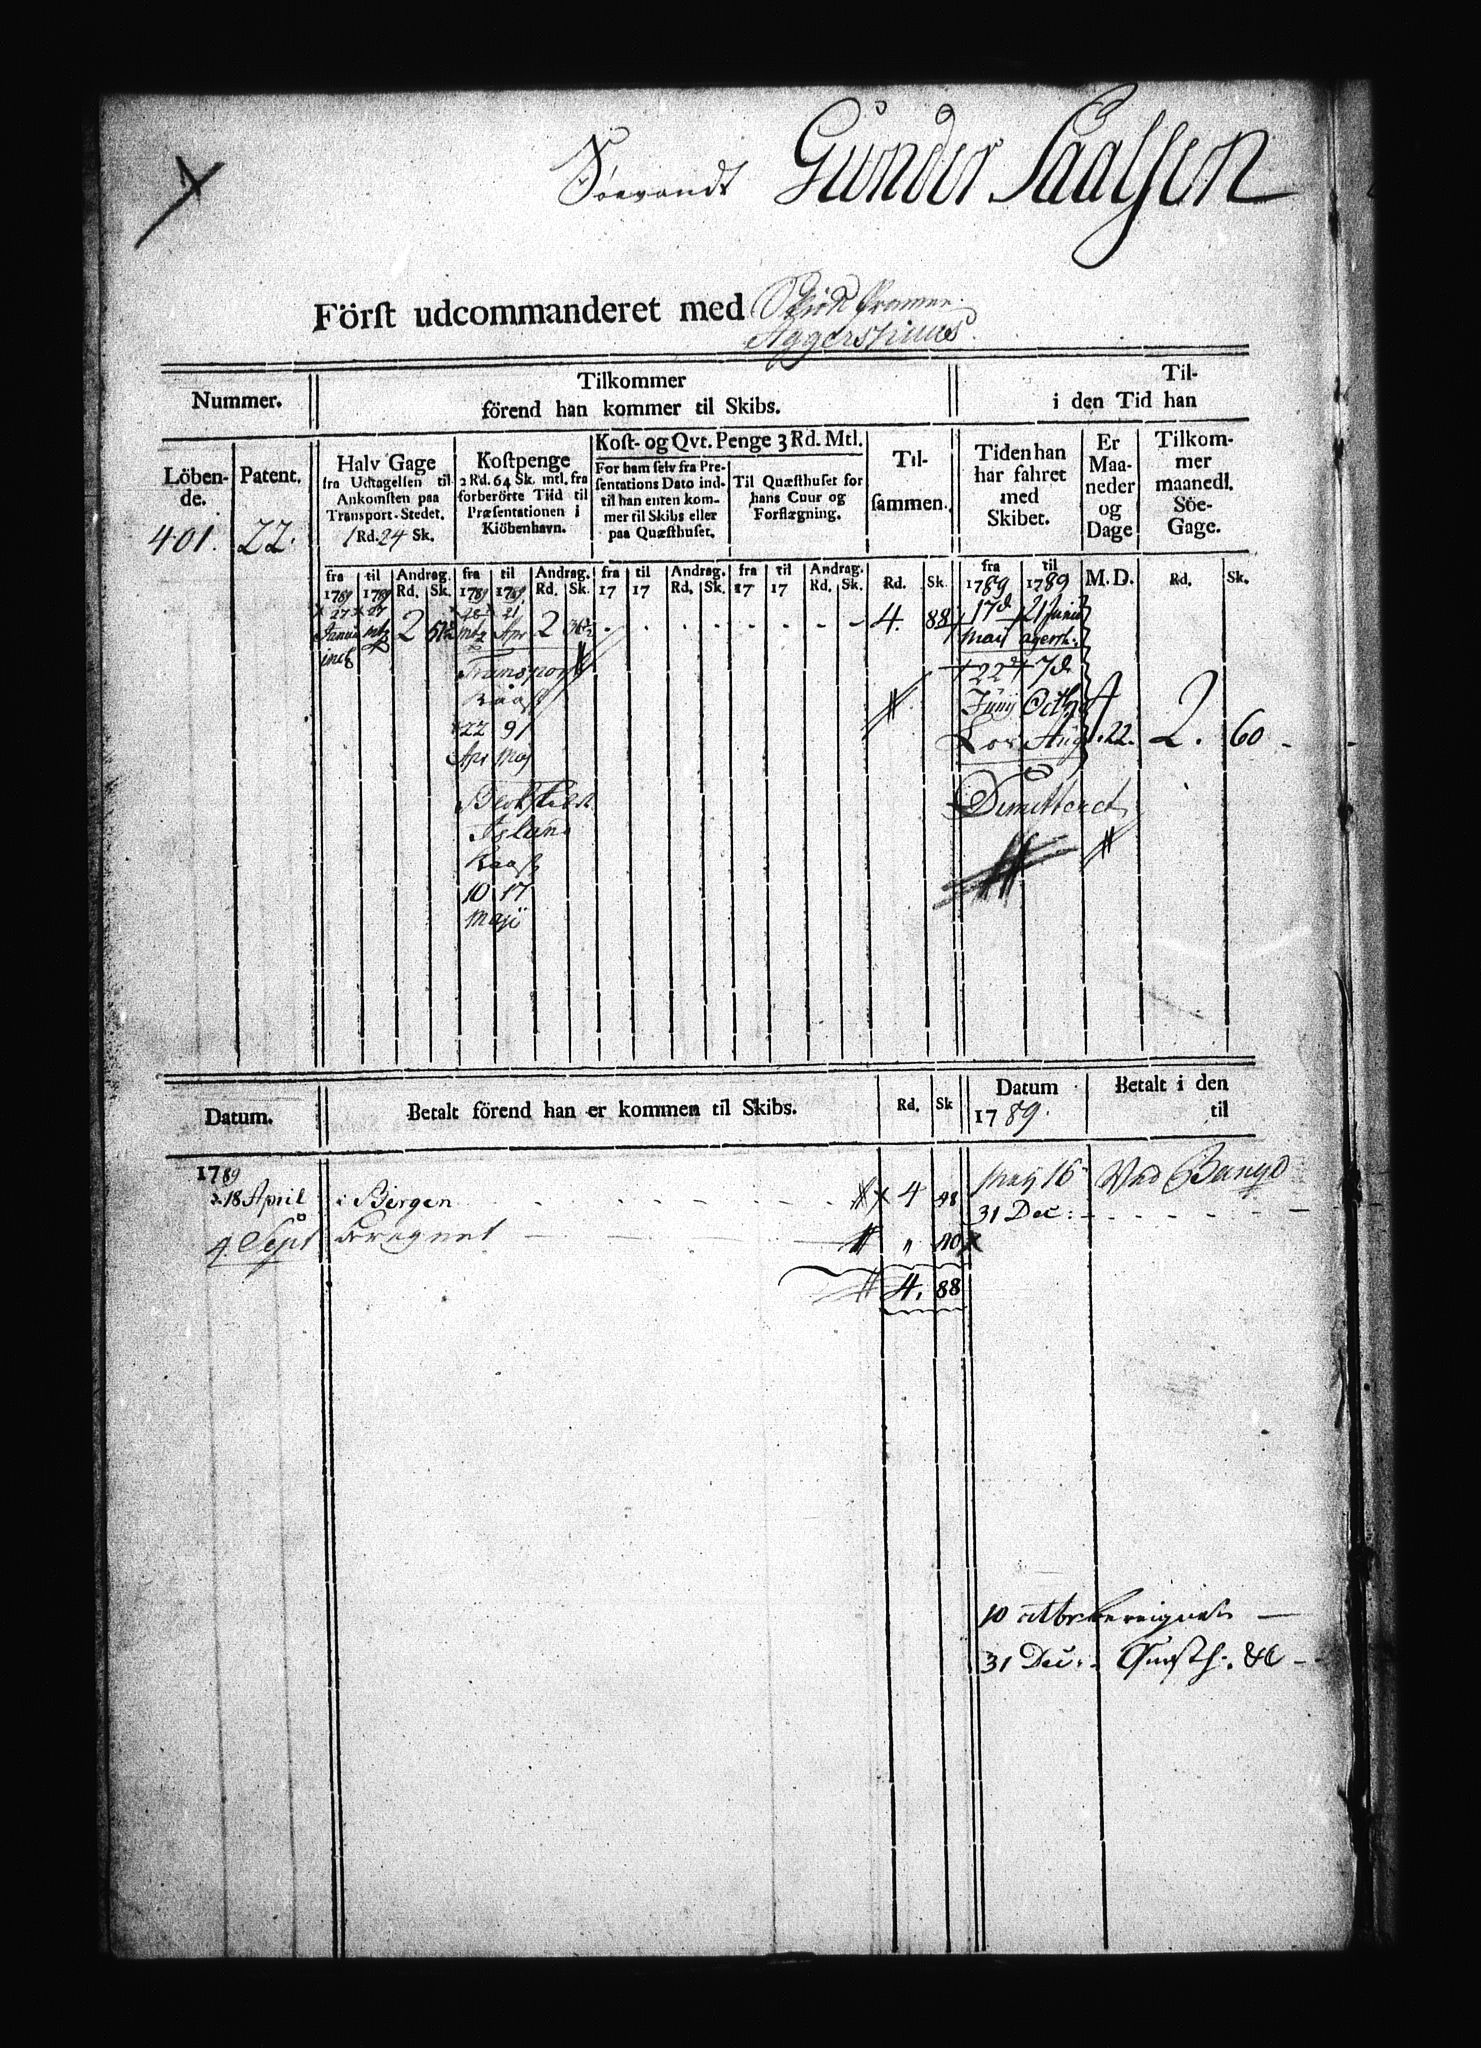 Söevandt Gunder Saalsen
Först udcommanderet med Stük Pramen
Aggershuus
Nummer.
Tilkommer
förend han kommer til Skibs.
Til-
i den Tid han
Löben-
de.
Patent.
Halv Gage
fra Udtagelsen til
Ankomsten paa
Transport-Stedet.
1 Rd. 24 Sk.
Kostpenge
2 Rd. 64 Sk. mtl. fra
forberörte Tiid til
Præsentationen i
Kiöbenhavn.
Kost- og Qvt. Penge 3 Rd. Mtl.
For ham selv fra Pre-
sentations Dato ind-
til han enten kom-
mer til Skibs eller
paa Quæsthuset.
Til Quæsthuset for
hans Cuur og
Forflægning.
Til-
sammen.
Tiden han
har fahret
med
Skibet.
Er
Maa-
neder
og
Dage
Tilkom-
mer
maanedl.
Söe-
Gage.
401. 22.
fra til Andrag. fra til Andrag. fra til Andrag. fra til Andrag. fra til
1789 1789 Rd. Sk. 1789 1789 Rd. Sk. 17 17 Rd. Sk. 17 17 Rd. Sk. Rd. Sk. 1789 1789 M. D. Rd. Sk.
27 27 2 51½ 28 21 2 36½ 4. 88 17d 21 Junii
Januar mtz mtz Apr Maij agersh:
incl
Transport 22d 7d
Junij Octbr 4
22 91 Aug. 22. 2. 60
Apr Maj
Island Demitteret
10 17
Maji
Datum.
Betalt förend han er kommen til Skibs.
Rd. Sk
Datum
1789.
Betalt i den
til
1789
d. 18 April i Bergen 4 48 Maij 16
31 Dec:
4. Sept " 40
4. 88
10
31 Dec: Quæsth: &c